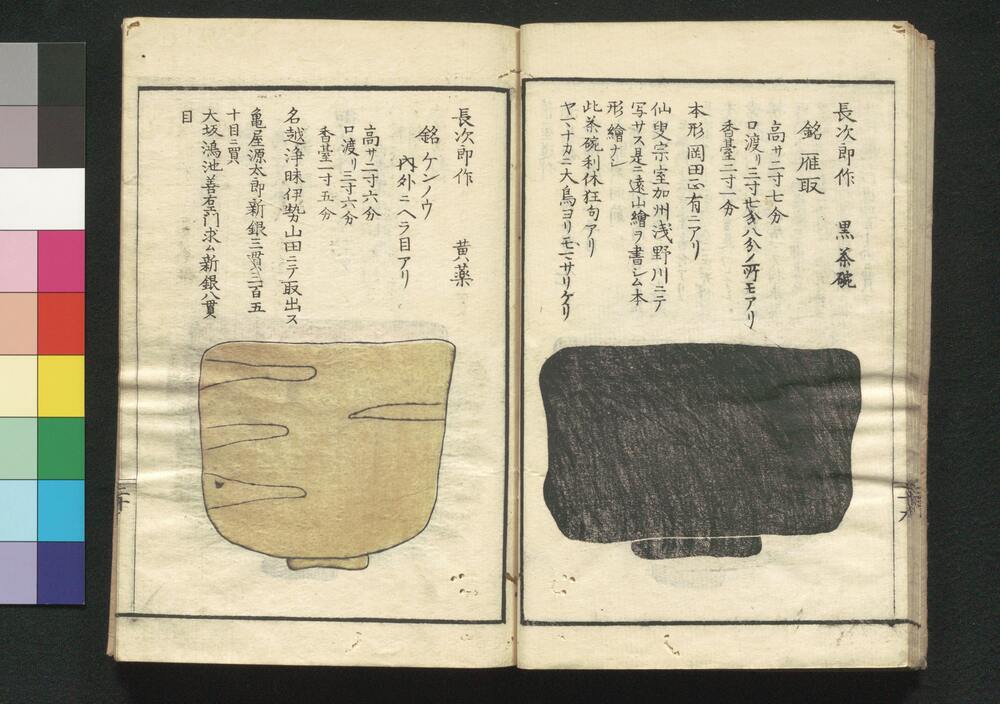 長次郎作 黒茶碗
銘 雁取
高サ二寸七分
口渡リ三寸 八分ノ所モアリ
香臺二寸一分
本形岡田正有ニアリ
仙叟宗室加州浅野川ニテ
写サス是ニ遠山繪ヲ書シム本
形繪ナシ
此茶碗利休狂句アリ
ヤヽナカニ大鳥ヨリモ サリケリ
長次郎作 黄薬
銘 ケンノウ
内外ニヘラ目アリ
高サ二寸六分
口渡リ三寸六分
香臺一寸五分
名越浄味伊勢山田ニテ取出ス
亀屋源太郎新銀三貫三百五
十目ニ買
大坂鴻池善右衛門求ム新銀八貫
目